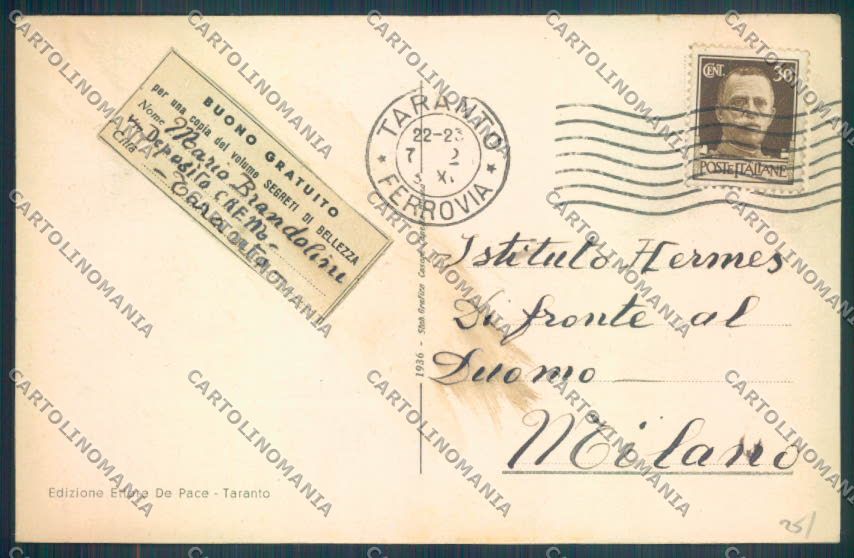 BUONO GRATUITO
per una copia del volume SEGRETI DI BELLEZZA
Nome Mario Brandolini
Via Deposito C.R.E.M.
Città - Taranto -
TARANTO
22-23
7 2
XI
FERROVIA
CENT. 30
POSTE ITALIANE
Istituto Hermes
Di fronte al
Duomo
Milano
1936 - Stab. Grafico
Edizione Ettore De Pace - Taranto
25/
CARTOLINOMANIA